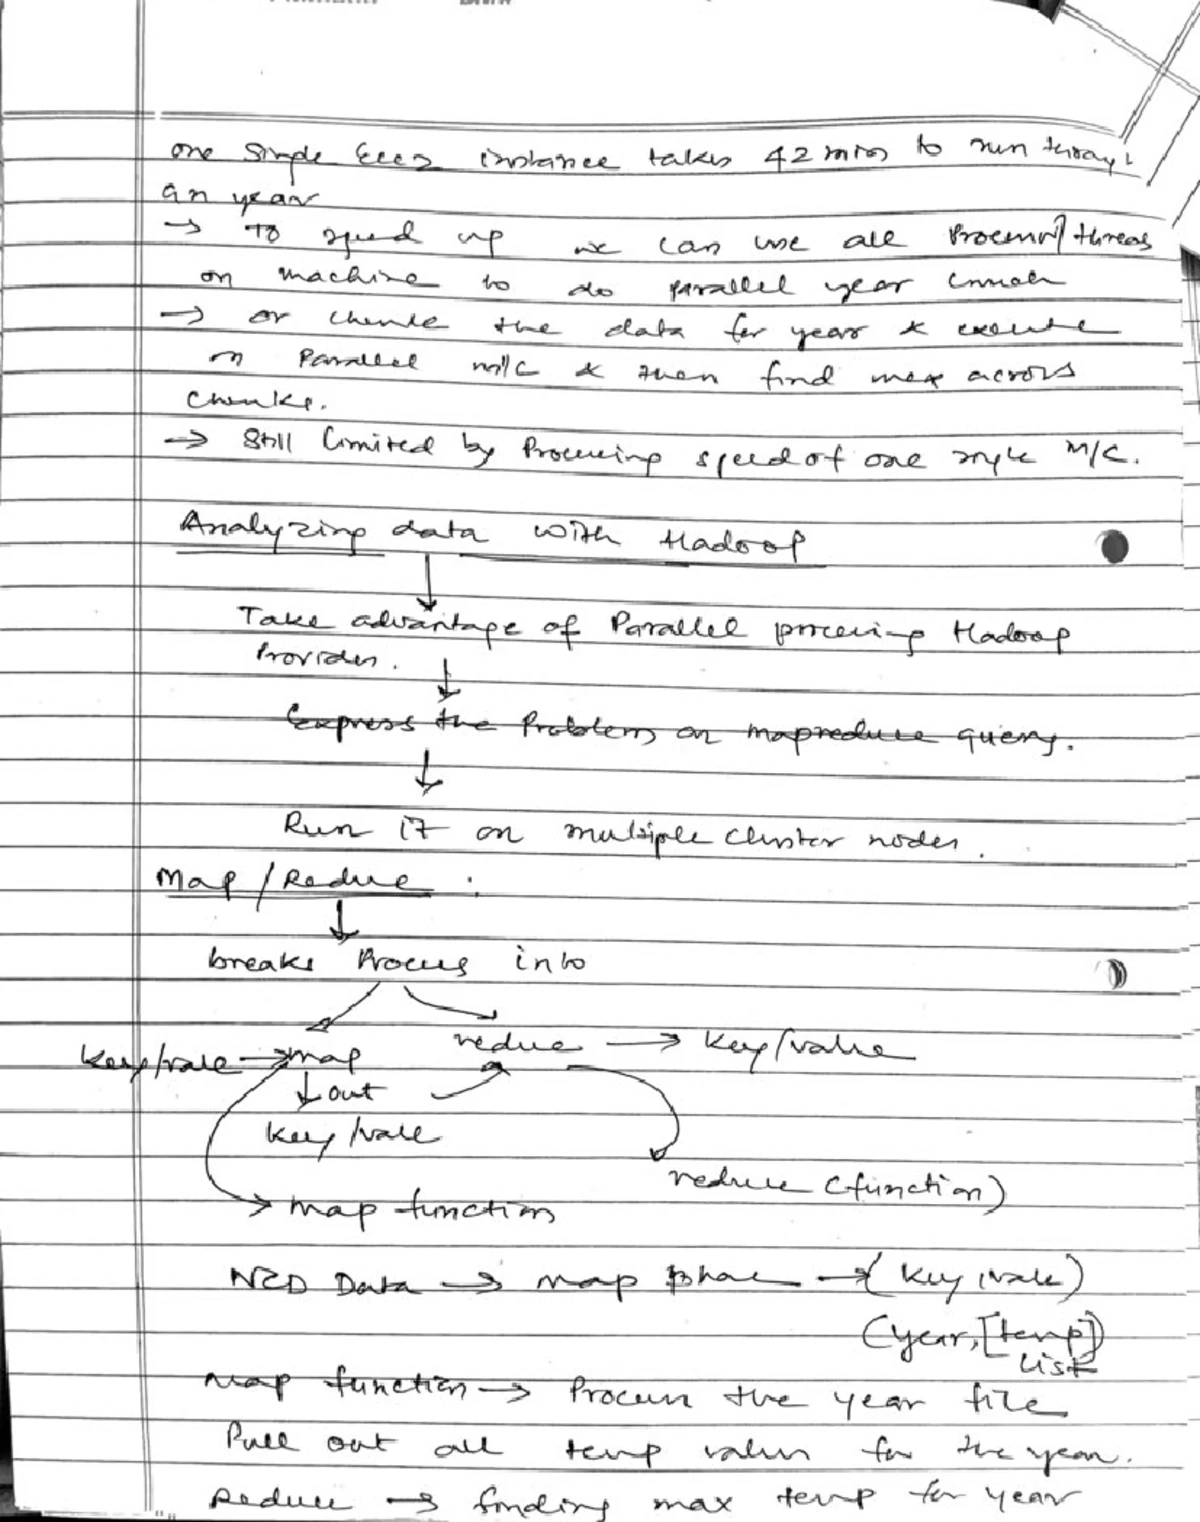 one single instance takes 42 mins to run
an year
→ To speed up we can use all Processor/threads
on machine to do parallel year
→ or chunk the data for year & execute
on Parallel m/c & then find max across
chunks.
→ Still limited by Processing speed of one single M/C.
Analyzing data with Hadoop
Take advantage of Parallel processing Hadoop
Provides.
Express the Problem on mapreduce query.
Run it on multiple cluster nodes.
Map / Reduce :
breaks Process into
key/vale → map reduce → key/value
out
key/vale
reduce (function)
map function
NCD Data → map phase → (key, vale)
(year, [temp])
List
map function → Process the year file
Pull out all temp values for the year.
reduce → finding max temp for year